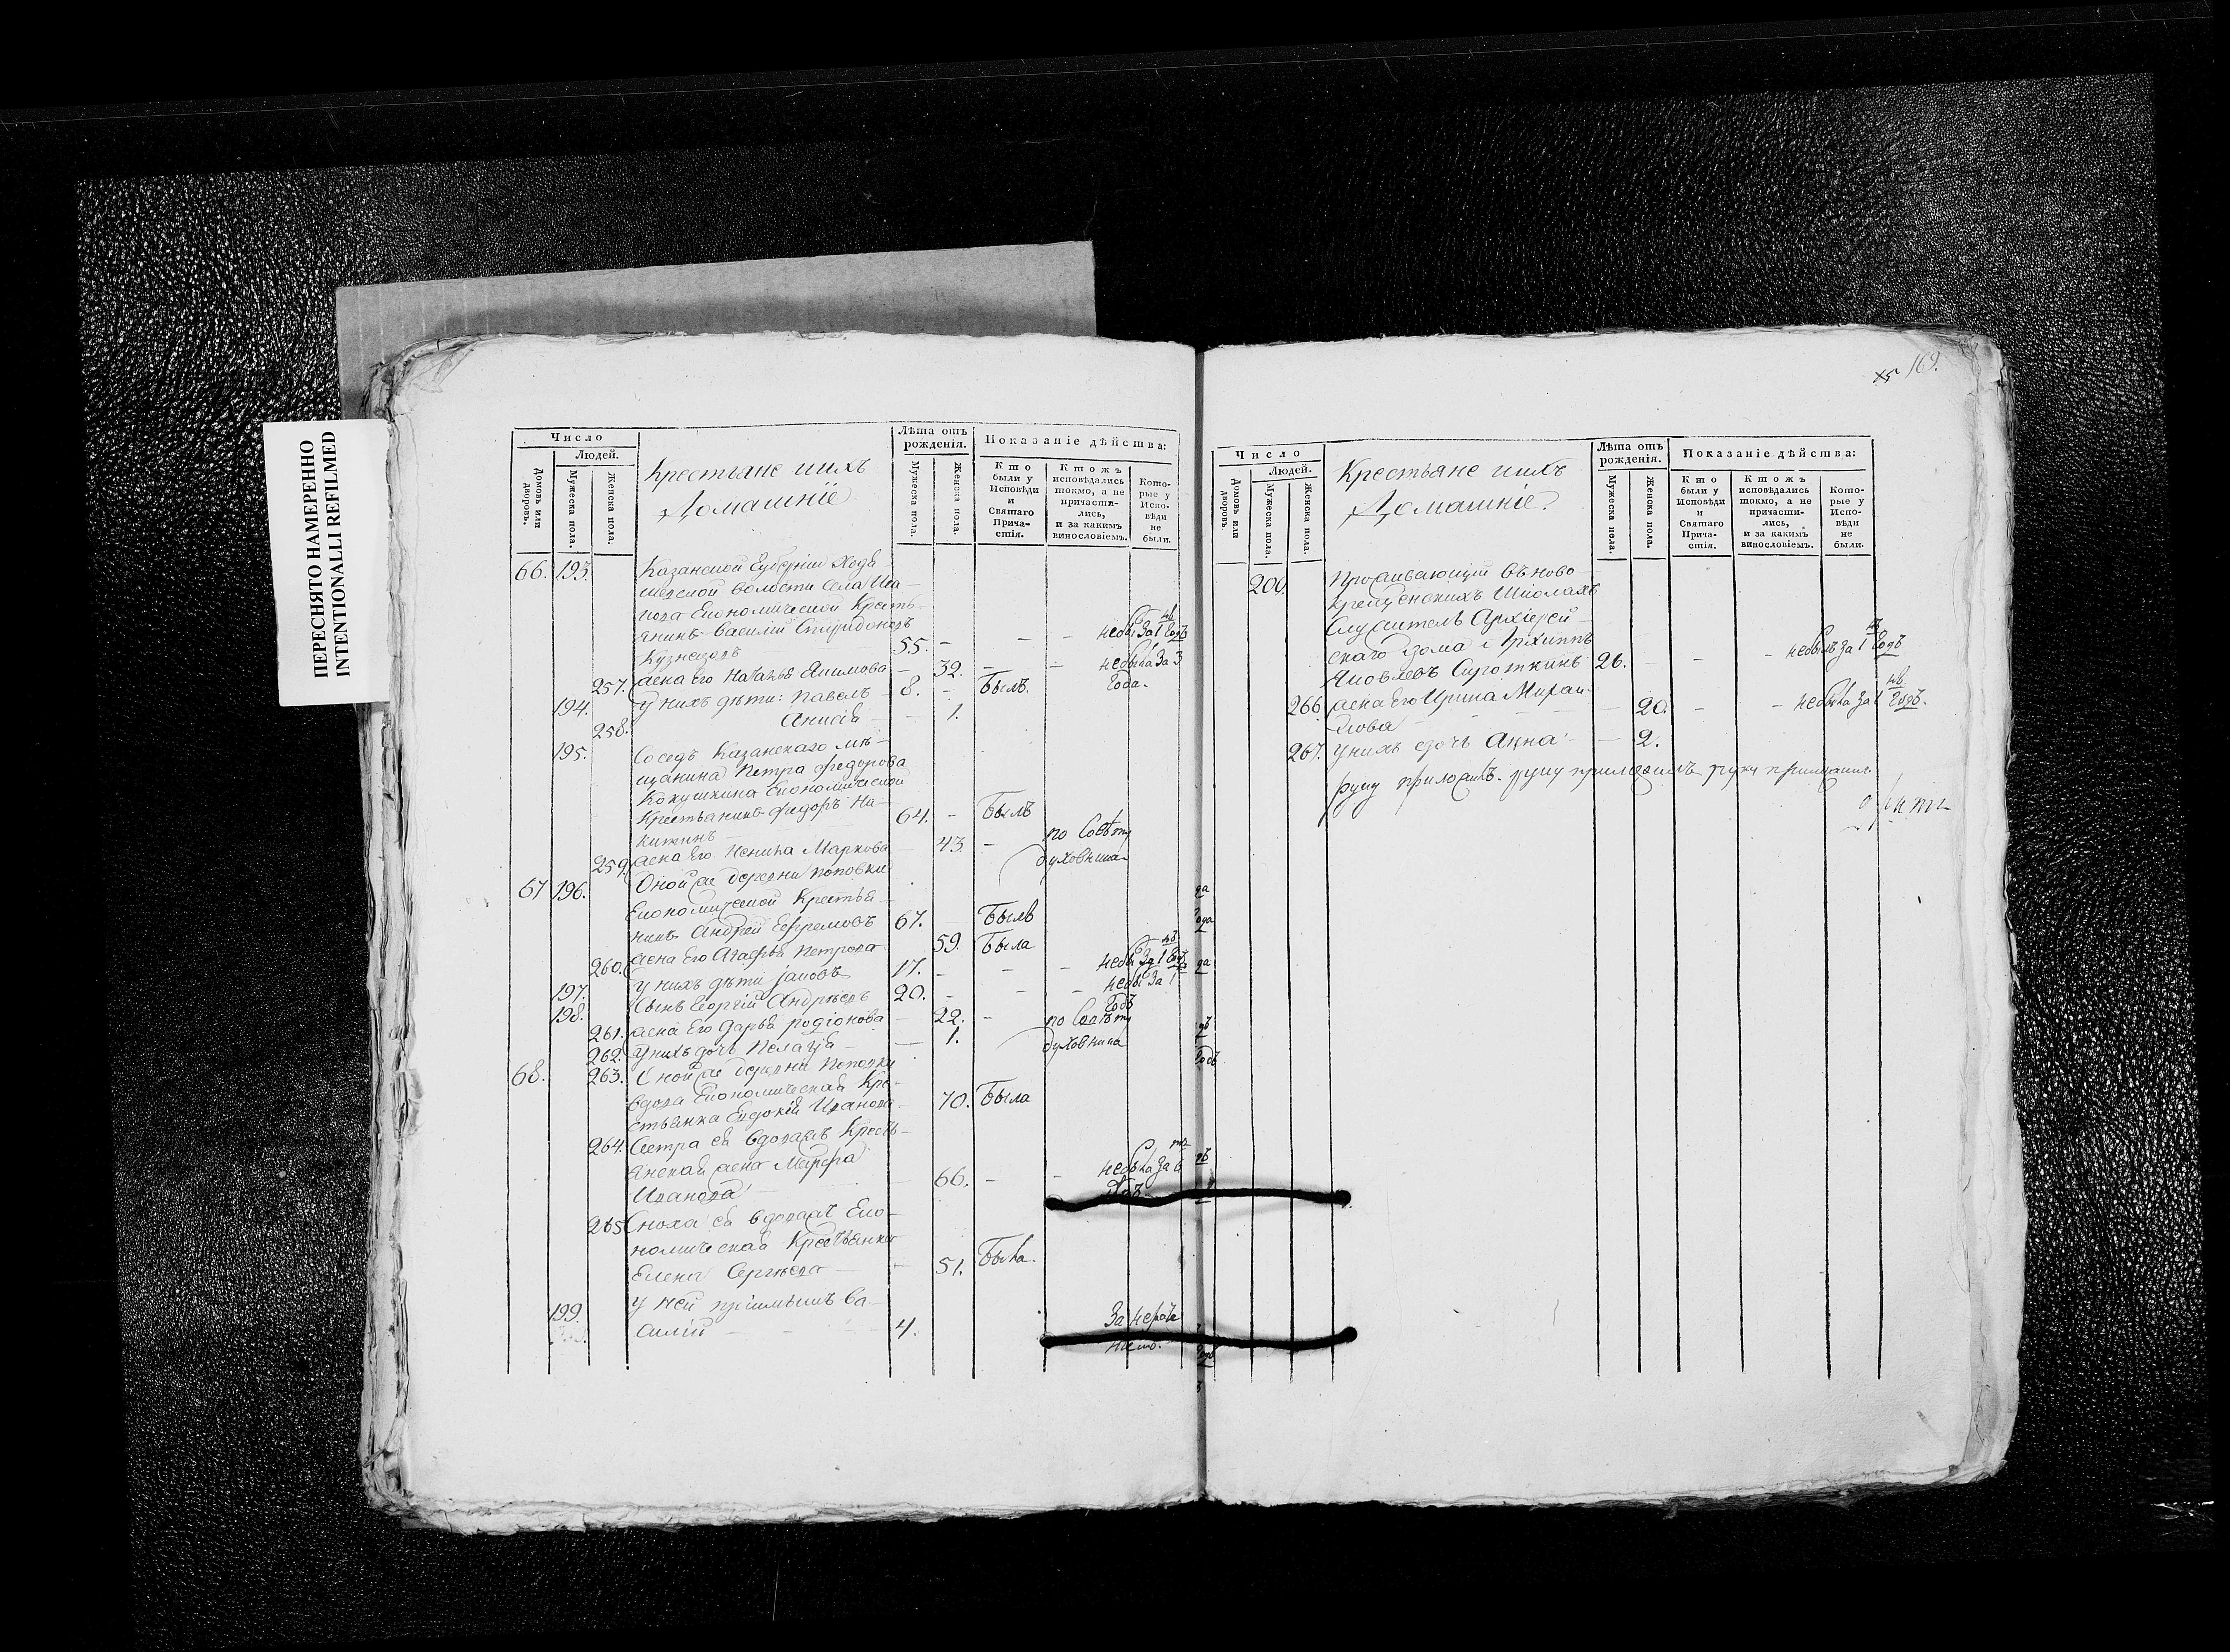 ПЕРЕСНЯТО НАМЕРЕННО
INTENTIONALLI REFILMED
Число
Людей.
Домовъ или дворовъ.
Мужеска пола.
Женска пола.
Крестьяне ихъ
Домашніе
Лѣта отъ рожденія.
Мужеска пола.
Женска пола.
Показаніе дѣйства:
Кто были у Исповѣди и Святаго Причастія.
Ктожъ исповѣдались токмо, а не причастились, и за какимъ винословіемъ.
Которые у Исповѣди не были.
66. 193. Казанской Губерніи
волости села
Економической Кресть-
янинъ Василій Спиридоновъ
Кузнецовъ 55. - - - небы За 1 Годъ
257. жена его Наталья Акимова - 32. - - небыла За 3
Года.
194. у нихъ дѣти: Павелъ - 8. - Былъ.
258. Анисія - - 1.
195. Соседъ Казанскаго мѣ-
щанина Петра Федорова
Кокушкина Економической
Крестьянинъ Федоръ Ни-
китинъ 64. - Былъ
259. жена Его Ксениѧ Маркова - 43. - по Совѣту
духовника
67 196. Оной же деревни Поповки
Економической Крестья-
нинъ Андрей Ефремовъ 67. Былъ
260. жена Его Агафья Петрова 59. Была
197. у нихъ дѣти Іаковъ 17. - - - небы За 1 Годъ
198. Сынъ Георгій Андрѣевъ 20. - - - небы За 1
Годъ
261. жена Его Дарья Родіонова - 22. - по Совѣту
262. у нихъ дочь Пелагія - - 1. духовника
68. 263. Оной же деревни Поповки
вдова Економическая Кре-
стьянка Евдокія Иванова 70. Была
264. Сестра ея вдова Кресть-
янская жена Марфа
Иванова - 66. - - небыла За 6
265. Сноха ея вдова Еко-
номическая Крестьянка
Елена Сергѣева - 51. Была.
199. у ней пріимышъ Ва-
силій - - - 4.
169.
Число
Людей.
Домовъ или дворовъ.
Мужеска пола.
Женска пола.
Крестьяне ихъ
Домашніе
Лѣта отъ рожденія.
Мужеска пола.
Женска пола.
Показаніе дѣйства:
Кто были у Исповѣди и Святаго Причастія.
Ктожъ исповѣдались токмо, а не причастились, и за какимъ винословіемъ.
Которые у Исповѣди не были.
200. Проживающій въ ново-
крещенскихъ Школахъ
Служитель Архіерей-
скаго дома Архиппъ
Яковлевъ Сироткинъ 26. - - небылъ За 1 Годъ
266. жена Его Ирина Михаи-
лова - - - 20. - - небыла За 1 Годъ.
267. у нихъ дочь Анна - - 2.
руку приложилъ. руку приложилъ руку приложилъ